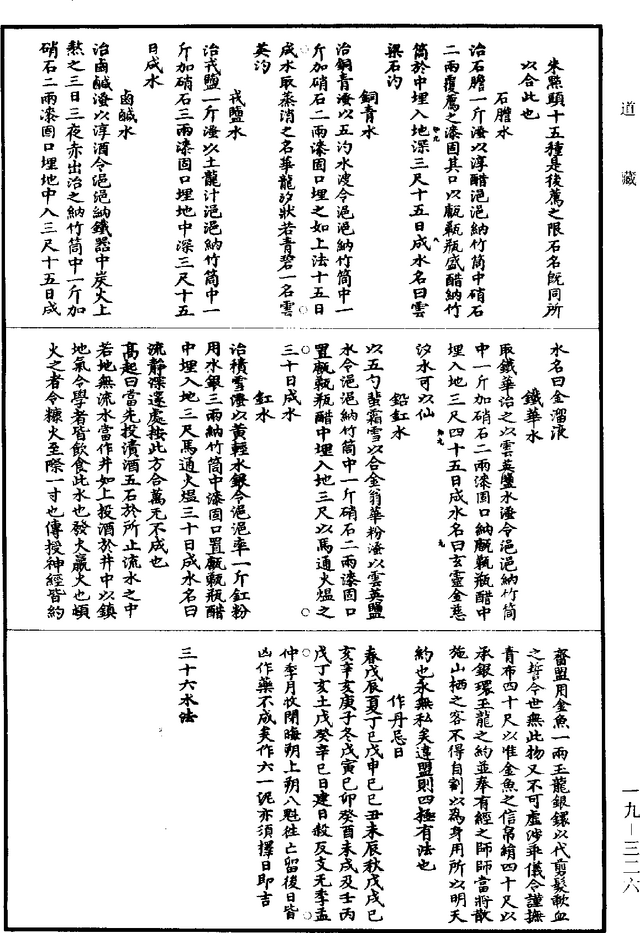 道藏
朱點頭十五種是後薦之限石名既同所
以合此也
石膽水
治石膽一斤漬以淳醋浥浥納竹筒中硝石
二兩覆薦之漆固其口以甌瓶盛醋納竹
筒於中埋入地深三尺十五日成水名曰雲
梁石汋
銅青水
治銅青漬以五汋水渡令浥浥納竹筒中一
斤加硝石二兩漆固口埋之如上法十五日
成水取蒸消之名華龍汐狀若青碧一名雲
英汋
戎鹽水
治戎鹽一斤漬以土龍汁浥浥納竹筒中一
斤加硝石三兩漆固口埋地中深三尺十五
日成水
鹵鹹水
治鹵鹹漬以淳酒令浥浥納鐵器中炭火上
熬之三日三夜赤出治之納竹筒中一斤加
硝石二兩漆固口埋地中入三尺十五日成
水名曰金溜液
鐵華水
取鐵華治之以雲英鹽水漬令浥浥納竹筒
中一斤加硝石二兩漆固口納甌瓶醋中
埋入地三尺四十五日成水名曰玄靈金慈
汐水可以仙
鉛釭水
以五勺霜雪以合金翁華粉漬以雲英鹽
水令浥浥納竹筒中一斤硝石二兩漆固口
置甌瓶醋中埋入地三尺以馬通火熅之
三十日成水
釭水
治積雪漬以黃輕水銀令浥浥率一斤釭粉
用水銀三兩納竹筒中漆固口置甌瓶醋
中埋入地三尺馬通火熅三十日成水名曰
流靜深遠處按此方合萬无不成也
高起曰當先投漬酒五石於所止流水之中
若地無流水當作井如上投酒於井中以鎮
地氣令學者皆飲食此水也發火羸火也頓
火之者令糠火至際一寸也傳授神經皆約
齋盟用金魚一兩玉龍銀鐶以代剪髮歃血
之誓今世無此物又不可虛涉乖儀令謹撫
青布四十尺以惟金魚之信帛絹四十尺以
承銀環玉龍之約並奉有經之師師當將散
施山栖之客不得自割以為身用所以明天
約也永無私矣違盟則四極有法也
作丹忌日
春戊辰夏丁巳戊申己丑未辰秋戊戌己
亥辛亥庚子冬戊寅己卯癸酉未戌及壬丙
戌丁亥土戊癸辛巳日建日殺反支无季孟
仲季月收閉晦朔上朔八魁往亡留後日皆
凶作藥不成矣作六一泥亦須擇日即吉
三十六水法
一九－三二六